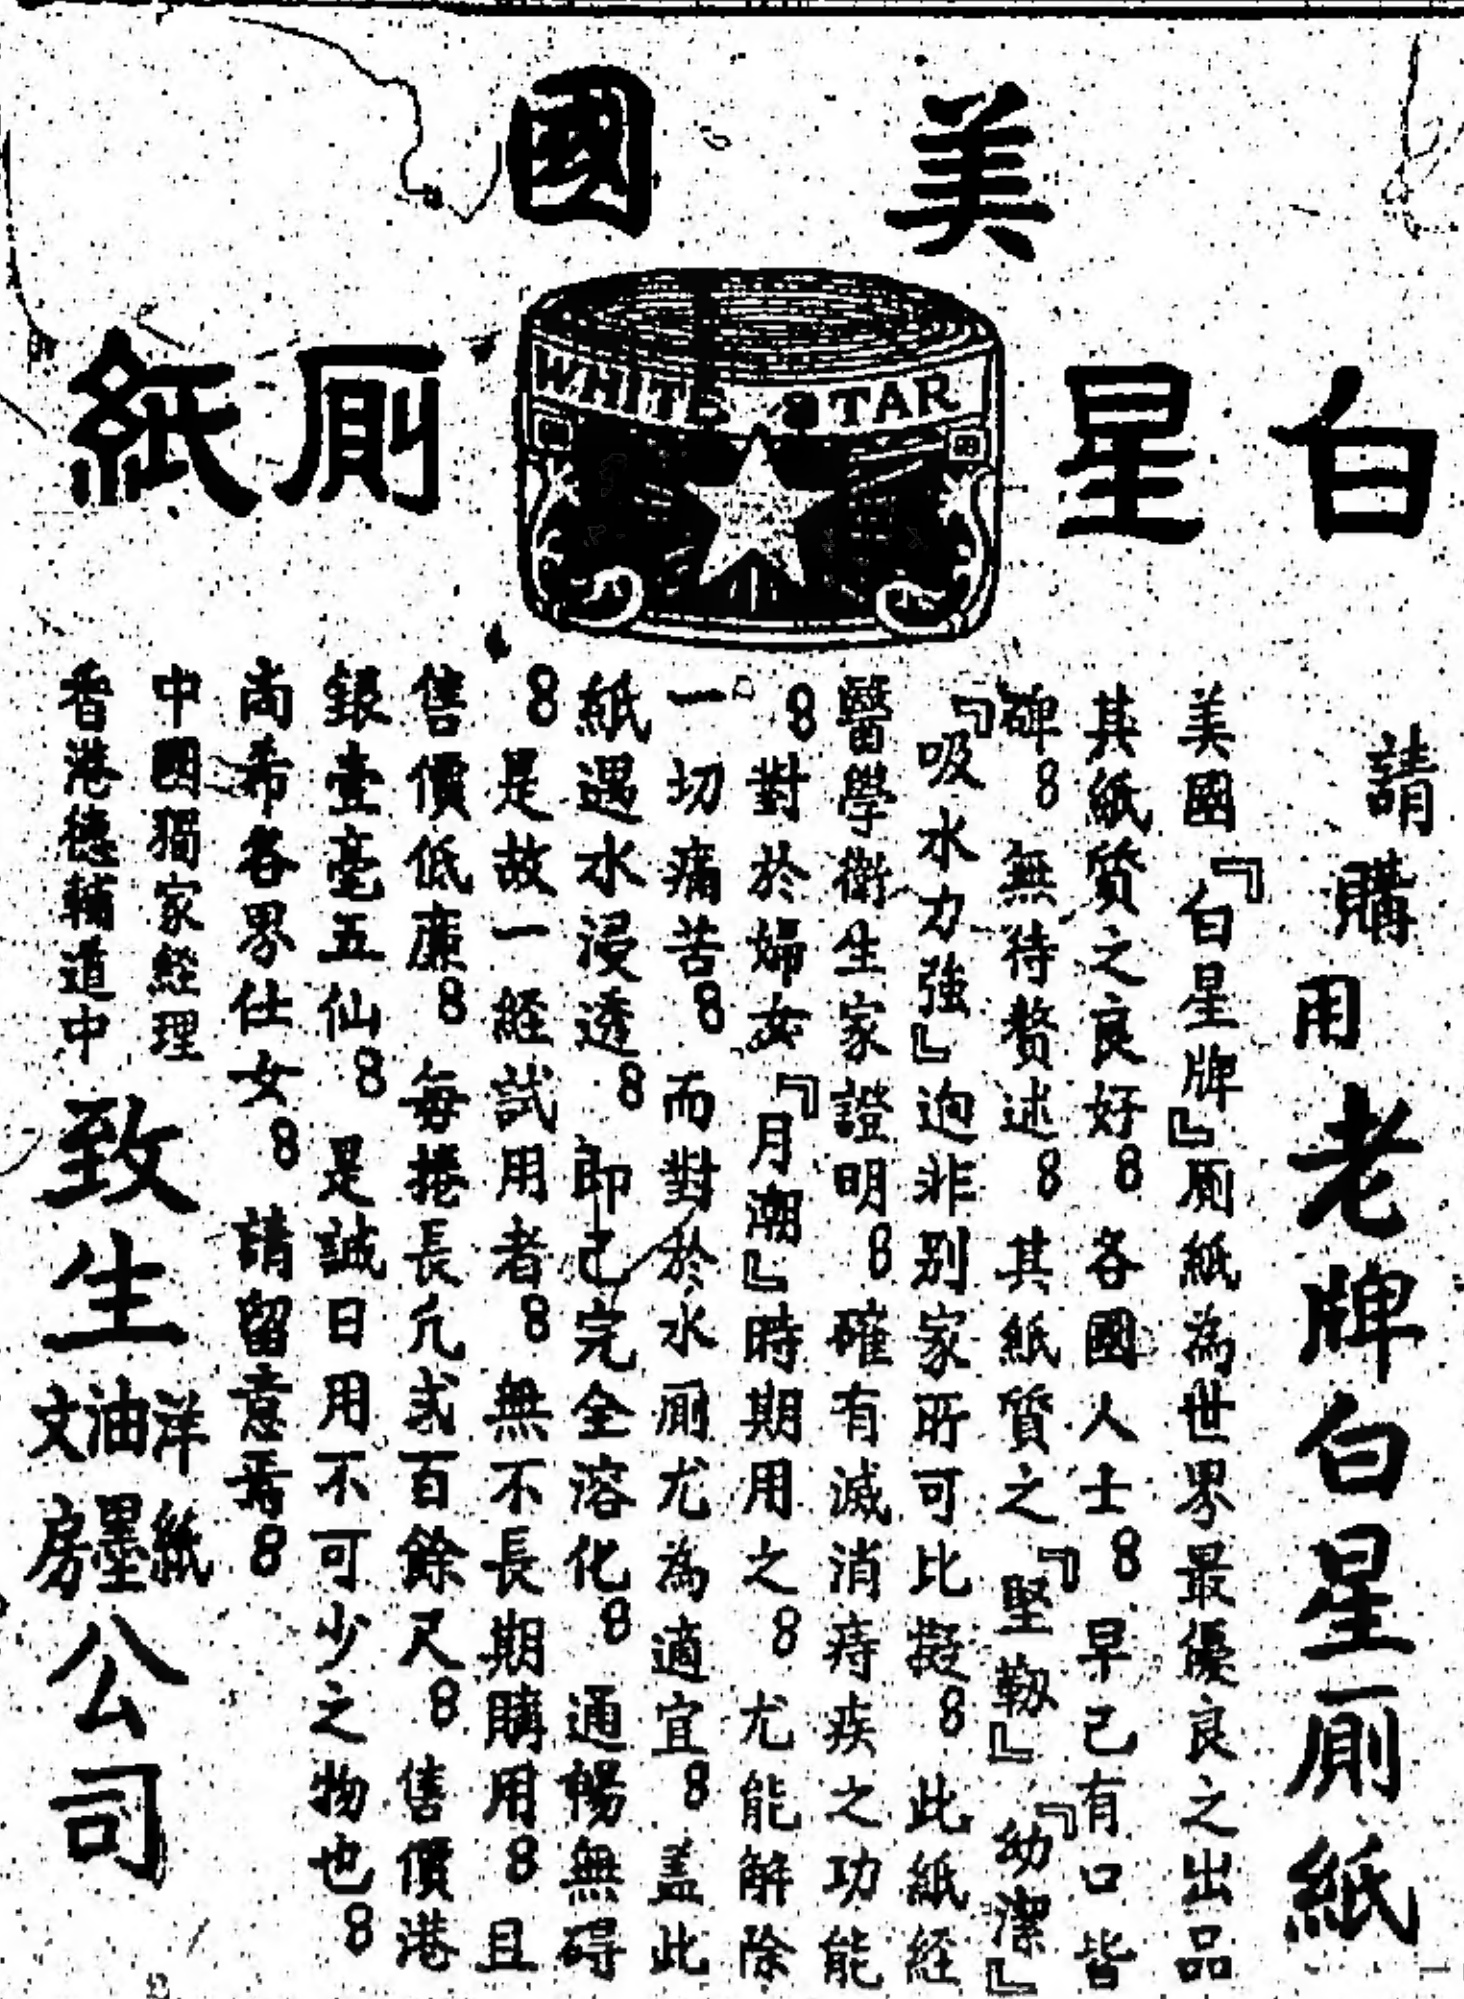 美國
白星廁紙
WHITE STAR
請購用老牌白星廁紙
美國『白星牌』廁紙為世界最優良之出品
其紙質之良好8各國人士8早已有口皆
碑8無待贅述8其紙質之『堅韌』『幼潔』
『吸水力強』迥非別家所可比擬8此紙経
醫學衛生家證明8確有滅消痔疾之功能
8對於婦女『月潮』時期用之8尤能解除
一切痛苦8而對於水廁尤為適宜8盖此
紙遇水浸透8即已完全溶化8通暢無碍
8是故一経試用者8無不長期購用8且
售價低廉8每捲長凢弍百餘尺8售價港
銀壹毫五仙8是誠日用不可少之物也8
尚希各界仕女8請留意焉8
中國獨家経理
香港德輔道中
致生
洋紙
油墨
文房
公司